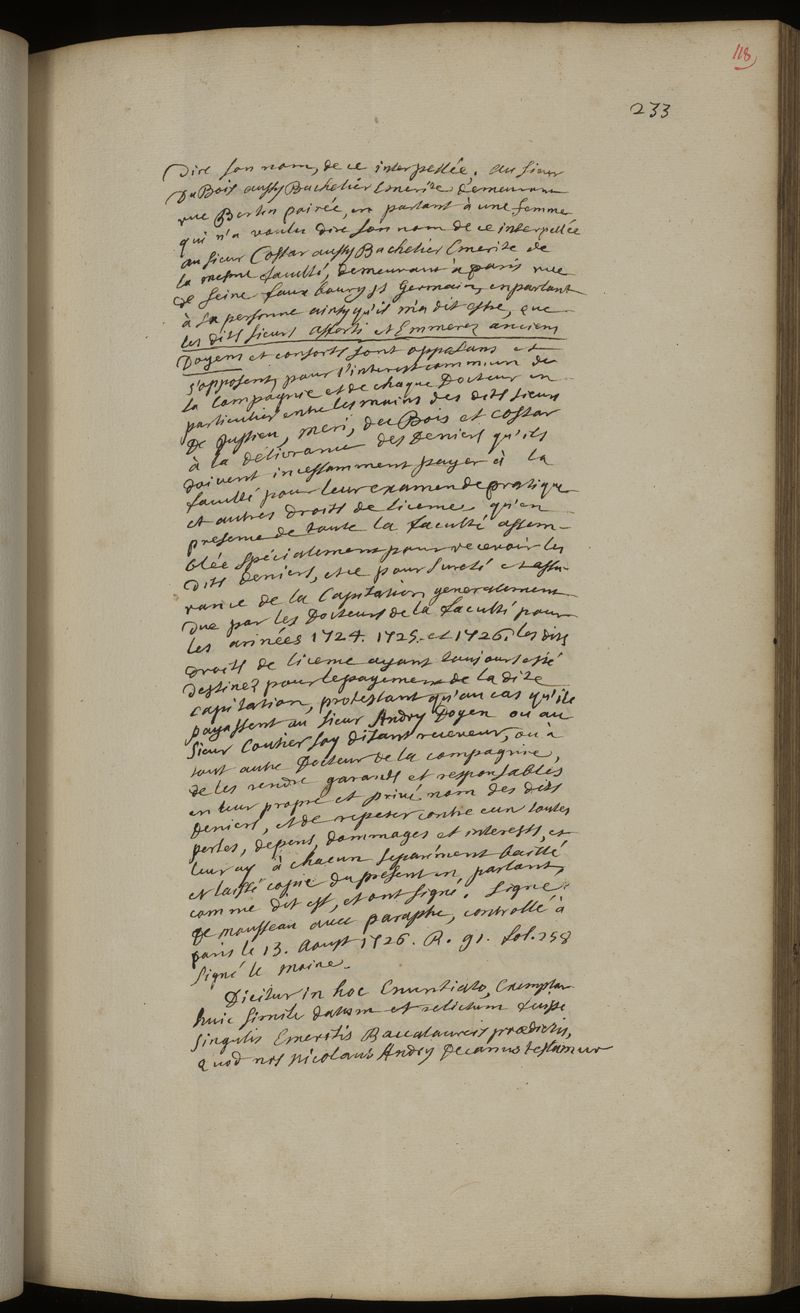 118
233
Dire son nom, de ce interpellée, au sieur
Du Bois aussy Bachelier Emerite demeurant
rue Bertin poirée, en parlant à une femme
qui n'a voulu dire son nom de ce interpellée
au sieur Costar aussy Bachelier Emerite de
la mesme faculté, demeurant à paris rue
de Seine faux bourg st Germain, en parlant
à sa personne ainsy qu'il m'a dit estre, que
les dits sieurs Afforti et Emmerez anciens
Doyens et consorts sont oppalans et
s'opposent, pour l'interest commun de
la Compagnie et de chaque Docteur en
particulier entre les mains des dits sieurs
De Jussieu, Meri, du Bois et Costar
à la delivrance des deniers qu'ils
doivent incessamment payer à la
faculté pour leur examen de pratique
et autres droits de licence qu'en
presence de toute la faculté assem-
blée spécialement pour recevoir les
dits deniers, et ce pour sureté et assu-
rance de la Capitation generalement
due par les Docteurs de la faculté pour
les années 1724. 1725. et 1726, les dits
droits de licence ayant toujours esté
destinez pour le payement de la dite
capitation, protestant qu'au cas qu'ils
payassent au sieur Andry Doyen ou au
sieur Couhier soy disant receveur, ou à
tout autre Docteur de la compagnie,
de les rendre garants et responsables
en leur propre et privé nom des dits
deniers, et de repeter contre eux toutes
pertes, depens, dommages et interests, et
leur ay à chacun separément baillé
et laissé copie du present en parlant,
comme dit est, et ont signé. Signé
De mousseau avec paraphe, controllé à
paris le 13. Aoust 1726. R. 91. fol. 258
Signé le Moine.
Dicitur in hoc Enuntiato, Exemplar
huic simile datum et relictum fuisse
singulis Emeritis Baccalaureis praedictis,
quod nos Nicolaus Andry Decanus testamur